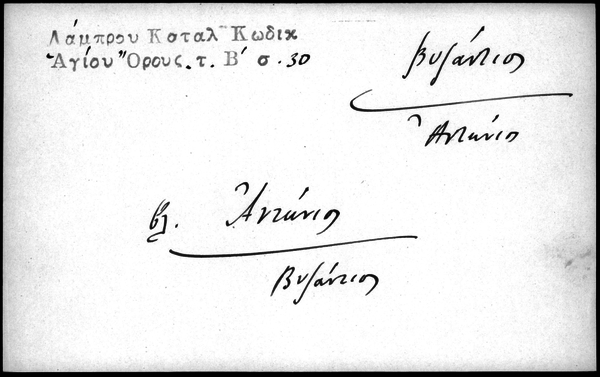 Λάμπρου Καταλ Κωδικ
Ἁγίου Ὄρους. τ. Β΄ σ. 30
Βυζάντιος
Ἀντώνιος
βλ. Ἀντώνιος
Βυζάντιος